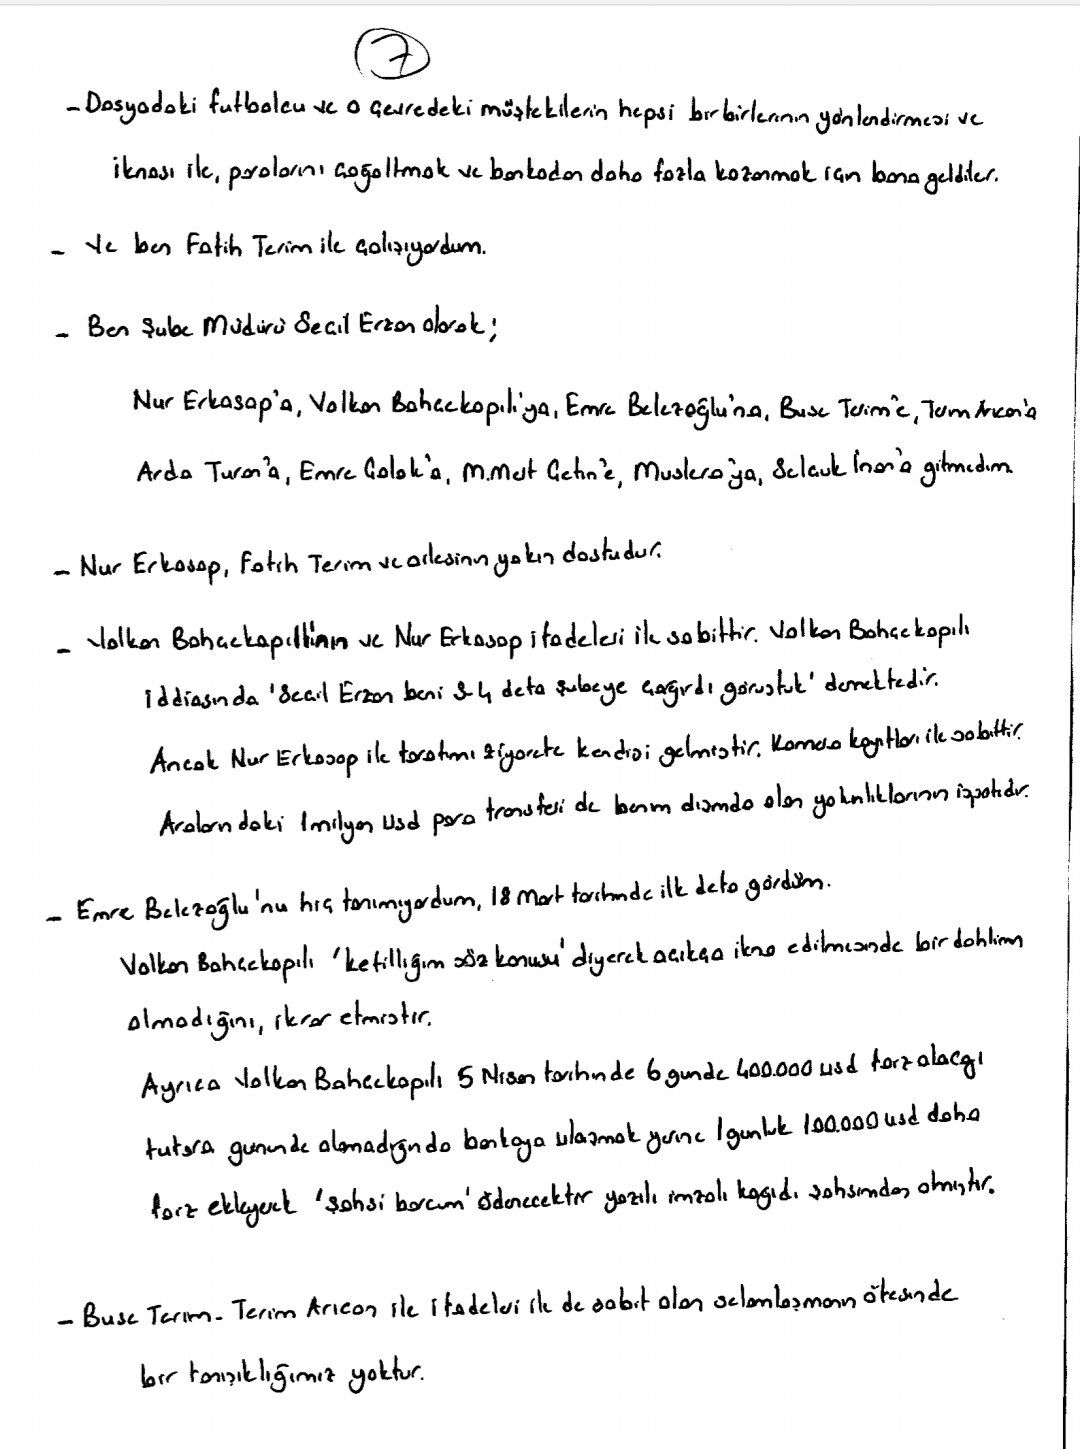 7
- Dosyadaki futbolcu ve o çevredeki müştekilerin hepsi birbirlerinin yönlendirmesi ve
iknası ile, paralarını çoğaltmak ve bankadan daha fazla kazanmak için bana geldiler.
- Ve ben Fatih Terim ile çalışıyordum.
- Ben Şube Müdürü Seçil Erzan olarak;
Nur Erkasap'a, Volkan Bahçekapılı'ya, Emre Belezoğlu'na, Buse Terim'e, Terim Arıcan'a
Arda Turan'a, Emre Çolak'a, M.Mert Çetin'e, Muslera'ya, Selçuk İnan'a gitmedim.
- Nur Erkasap, Fatih Terim ve ailesinin yakın dostudur.
- Volkan Bahçekapılı'nın ve Nur Erkasap ifadeleri ile sabittir. Volkan Bahçekapılı
iddiasında 'Seçil Erzan beni 3-4 defa şubeye çağırdı görüştük' demektedir.
Ancak Nur Erkasap ile tarafımı ziyarete kendisi gelmiştir. Kamera kayıtları ile sabittir.
Aralarındaki 1 milyon usd para transferi de benim dışımda olan yakınlıklarının ispatıdır.
- Emre Belezoğlu'nu hiç tanımıyordum, 18 Mart tarihinde ilk defa gördüm.
Volkan Bahçekapılı 'kefilliğim söz konusu' diyerek açıkça ikna edilmesinde bir dahlim
olmadığını, ikrar etmiştir.
Ayrıca Volkan Bahçekapılı 5 Nisan tarihinde 6 günde 400.000 usd farz alacağı
tutara gününde alamadığında bankaya ulaşmak yerine 1 günlük 100.000 usd daha
farz ekleyerek 'şahsi borcum' ödenecektir yazılı imzalı kağıdı şahsımdan almıştır.
- Buse Terim - Terim Arıcan ile ifadeleri ile de sabit olan selamlaşmanın ötesinde
bir tanışıklığımız yoktur.